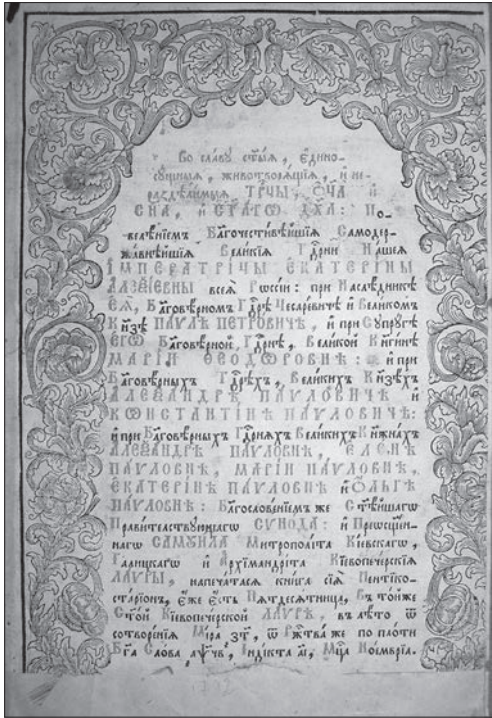 Во сла́вꙋ ст҃ы́ѧ, є҆дино-
сꙋ́щныѧ, животворѧ́щїѧ, и҆ не-
раздѣли́мыѧ ТРЦ҃Ы, Ѻ҆Ц҃А̀ и҆
СН҃А, и҆ СТ҃А́ГѠ ДХ҃А: По-
велѣ́нїемъ Бл҃гочести́вѣйшїѧ Самодер-
жа́внѣйшїѧ Вели́кїѧ Гдⷭ҇рни На́шеѧ
І҆МПЕРАТРІ́ЦЫ ЕКАТЕРІ́НЫ
АЛЕѮІ́ЕВНЫ всеѧ̀ Рѡссі́и: при Наслѣ́дникѣ
Еѧ̀, Бл҃говѣ́рномъ Гдⷭ҇рѣ Цесаре́вичѣ и҆ Вели́комъ
Кн҃зѣ ПА́ѴЛѢ ПЕТРО́ВИЧѢ, и҆ при Сꙋпрꙋ́гѣ
Е҆ГѠ̀ Бл҃говѣ́рной Гдⷭ҇рнѣ, Вели́кой Кн҃ги́нѣ
МАРІ́И ѲЕОДѠРОВНѢ: и҆ при
Бл҃говѣ́рныхъ Гдⷭ҇рѣхъ, Вели́кихъ Кн҃зѣхъ
АЛЕѮА́НДРѢ ПА́ѴЛОВИЧѢ и҆
КѠНСТАНТІ́НѢ ПА́ѴЛОВИЧѢ:
и҆ при Бл҃говѣ́рныхъ Гдⷭ҇рнѧхъ Вели́кихъ Кн҃жна́хъ
АЛЕѮА́НДРѢ ПА́ѴЛОВНѢ, ЕЛЕ́НѢ
ПА́ѴЛОВНѢ, МАРІ́И ПА́ѴЛОВНѢ,
ЕКАТЕРІ́НѢ ПА́ѴЛОВНѢ и҆ Ѻ҆́ЛЬГѢ
ПА́ѴЛОВНѢ: Бл҃гослове́нїемъ же Ст҃ѣ́йшагѡ
Прави́телствꙋющагѡ СѴНО́ДА: и҆ Преѡсщ҃е́н-
нагѡ САМꙊИ́ЛА Митрополі́та Кі́евскагѡ,
Га́лицкагѡ и҆ Архїмандрі́та Кїевопече́рскїѧ
ЛА́ѴРЫ, напеча́тасѧ кни́га сїѧ̀ Пентико-
ста́рїонъ, є҆́же є҆́сть Пѧтдесѧ́тница, въ то́йже
Ст҃о́й Кїевопече́рской ЛА́ѴРѢ, въ лѣ́то ѿ
сотворе́нїѧ Мі́ра ҂зт҃, ѿ Ржⷭ҇тва́ же по пло́ти
Бг҃а Сло́ва ҂аѱ҃чв, І҆нді́кта а҃і, Мцⷭ҇а Ное́мврїа.